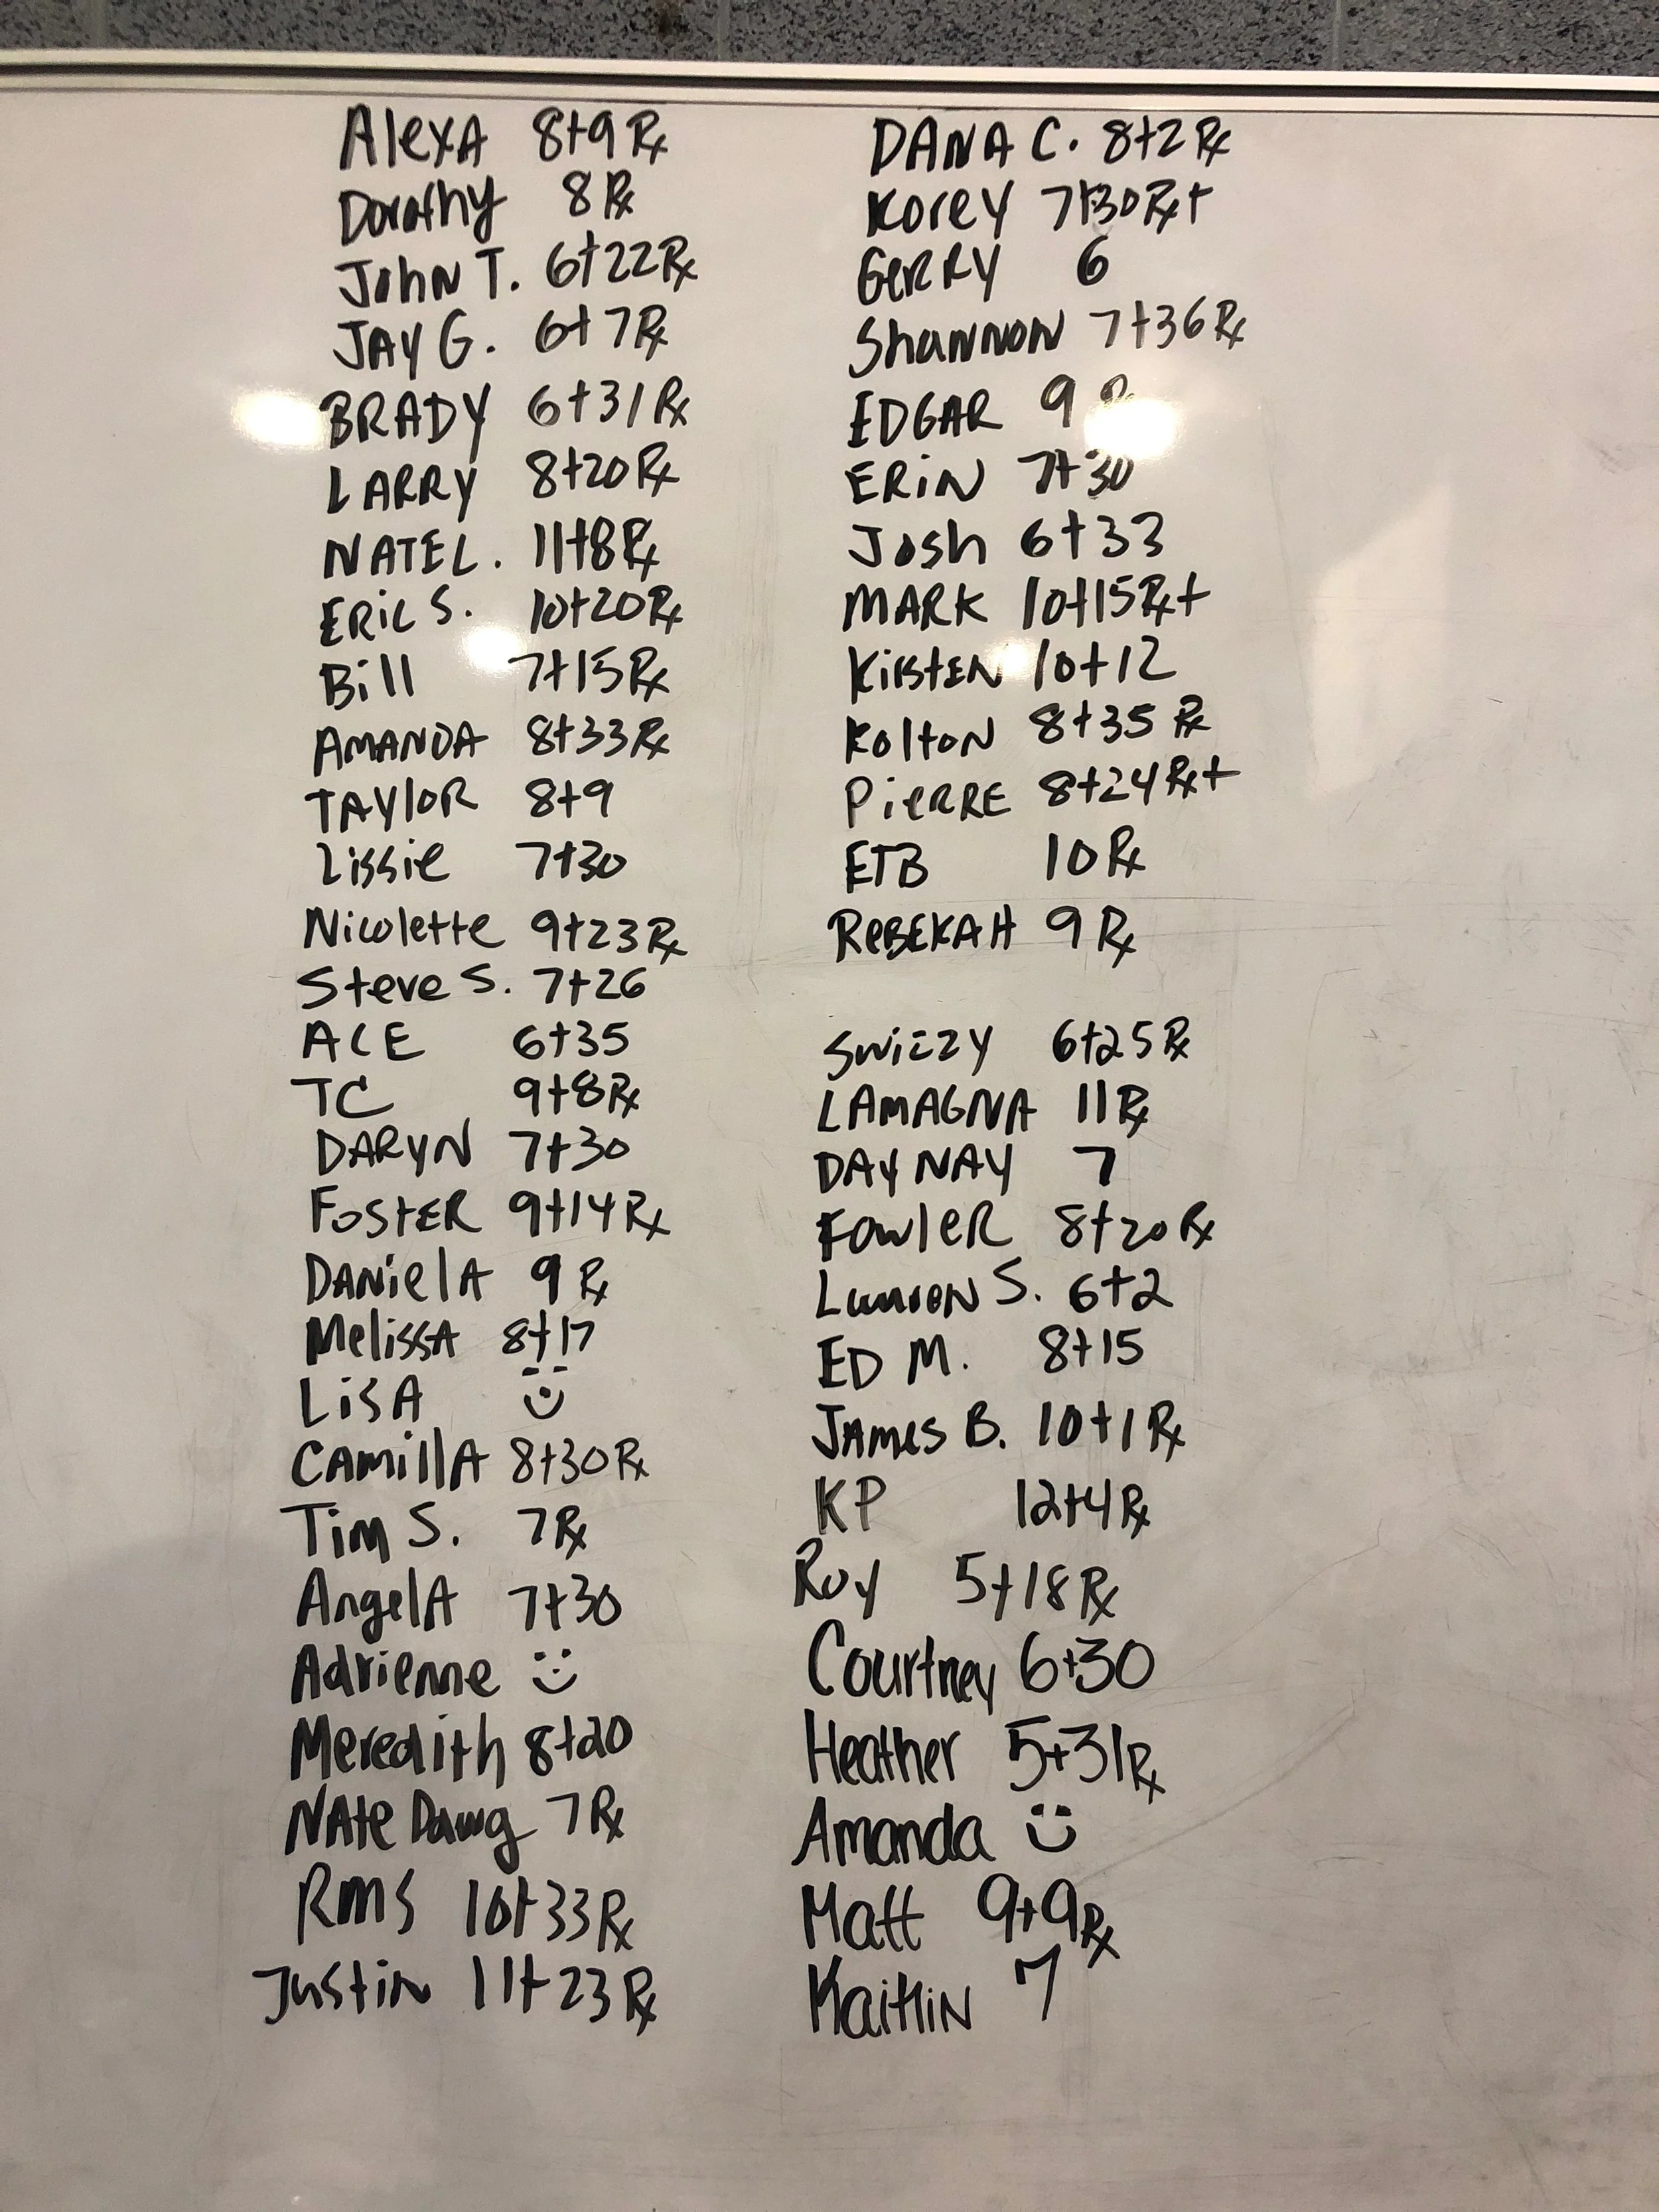 AlexA 8+9 Rx
Dorothy 8 Rx
JohN T. 6+22 Rx
JAY G. 6+7 Rx
BRADY 6+31 Rx
LARRY 8+20 Rx
NATE L. 11+8 Rx
ERiC S. 10+20 Rx
Bill 7+15 Rx
AMANDA 8+33 Rx
TAYloR 8+9
Lissie 7+30
Nicolette 9+23 Rx
Steve S. 7+26
ACE 6+35
TC 9+8 Rx
DARYN 7+30
FOSTER 9+14 Rx
DANielA 9 Rx
MelissA 8+17
LiSA
CAMillA 8+30 Rx
Tim S. 7 Rx
AngelA 7+30
Adrienne
Meredith 8+20
NAte Dawg 7 Rx
RMS 10+33 Rx
Justin 11+23 Rx
DANA C. 8+2 Rx
Korey 7+30 Rx+
GeRRY 6
ShaNNON 7+36 Rx
EDGAR 9
ERiN 7+30
Josh 6+33
MARK 10+15 Rx+
KiRStEN 10+12
KoltoN 8+35 Rx
PieRRE 8+24 Rx+
ETB 10 Rx
ReBEKAH 9 Rx
Swizzy 6+25 Rx
LAMAGNA 11 Rx
DAY NAY 7
FowleR 8+20 Rx
S. 6+2
ED M. 8+15
JAMes B. 10+1 Rx
KP 12+4 Rx
Roy 5+18 Rx
Courtney 6+30
Heather 5+31 Rx
Amanda
Matt 9+9 Rx
KaitliN 7